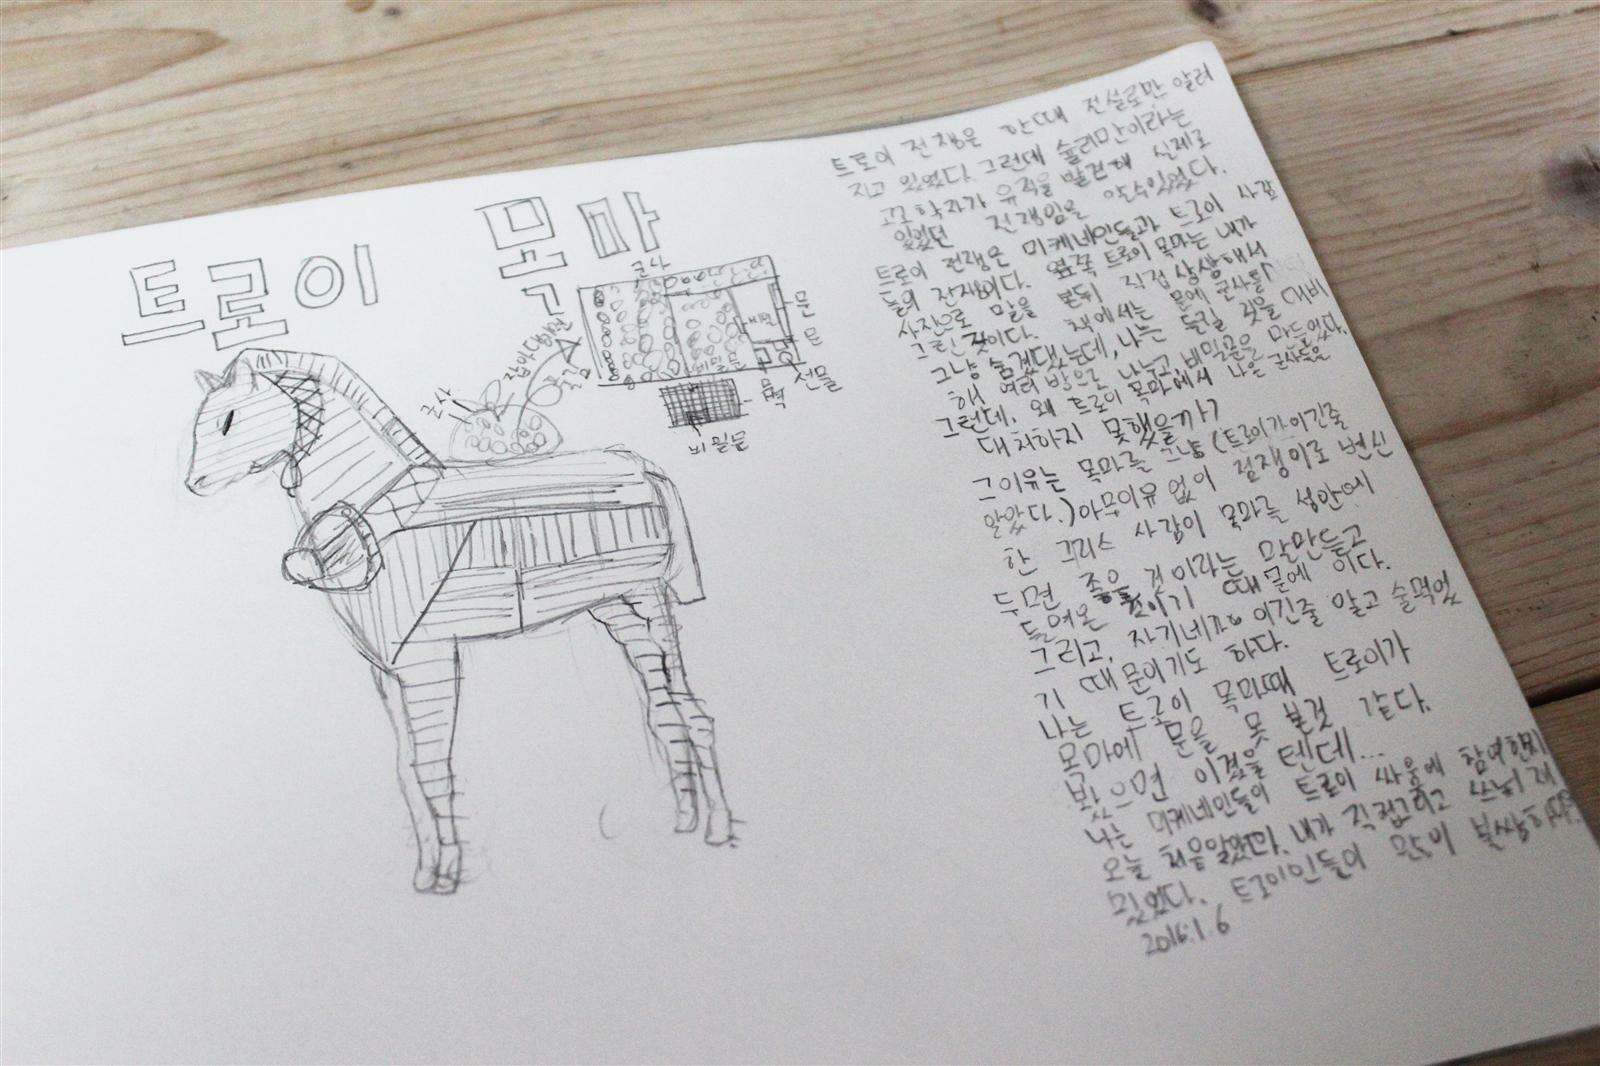 트로이 목마
군사
군사
잡아당 하면
열림
비밀문
비밀
문
문
벽
선물
비밀문
트로이 전쟁은 한때 전설로만 알려
지고 있었다. 그런데 슐리만이라는
고고학자가 유적을 발견해 실제로
있었던 전쟁임을 알수있었다.
트로이 전쟁은 미케네인들과 트로이 사람
들의 전쟁이다. 옆쪽 트로이 목마는 내가
사진으로 말을 본뒤 직접 상상해서
그린 것이다. 책에서는 문에 군사를
그냥 숨겼댔는데, 나는 들킬 것을 대비
해 여러 방으로 나누고 비밀문을 만들었다.
그런데, 왜 트로이 목마에서 나온 군사들을
대처하지 못했을까?
그이유는 목마를 그냥 (트로이가 이긴줄
알았다.) 아무이유 없이 점쟁이로 변신
한 그리스 사람이 목마를 성안에
두면 좋을 것이라는 말만듣고
들여온 것이기 때문에 이다.
그리고, 자기네가 이긴줄 알고 술먹었
기 때문이기도 하다.
나는 트로이 목마때 트로이가
목마에 문을 못 본것 같다.
봤으면 이겼을 텐데...
나는 미케네인들이 트로이 싸움에 참여한지
오늘 처음알았고, 내가 직접그리고 쓰니 재
밌었다. 트로이인들이 불쌍하다.
2016.1.6